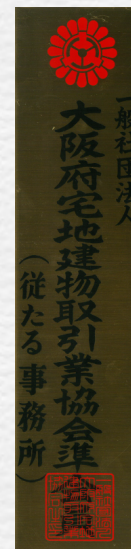 一般社団法人
大阪府宅地建物取引業協会準会員
（従たる事務所）